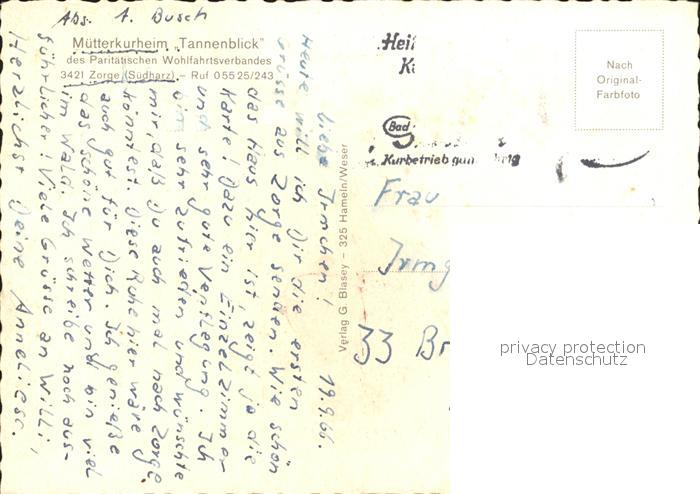 Abs. A. Busch
Mütterkurheim „Tannenblick"
des Paritätischen Wohlfahrtsverbandes
3421 Zorge (Südharz) – Ruf 0 55 25/243
Liebe Irmchen! 19.9.66.
Heute will ich Dir die ersten
Grüsse aus Zorge senden. Wie schön
das Haus hier ist, zeigt ja die
Karte! Dazu ein Einzelzimmer
und sehr gute Verpflegung. Ich
bin sehr zufrieden und wünschte
mir, daß Du auch mal nach Zorge
könntest. Diese Ruhe hier wäre
auch gut für Dich. Ich genieße
das schöne Wetter und bin viel
im Wald. Ich schreibe noch aus-
führlicher! Viele Grüsse an Willi,
Herzlichst Deine Anneliese.
Verlag G. Blasey – 325 Hameln/Weser
Heil
Bad
Kurbetrieb
Nach
Original-
Farbfoto
Frau
Irmg
33 Br
privacy protection
Datenschutz